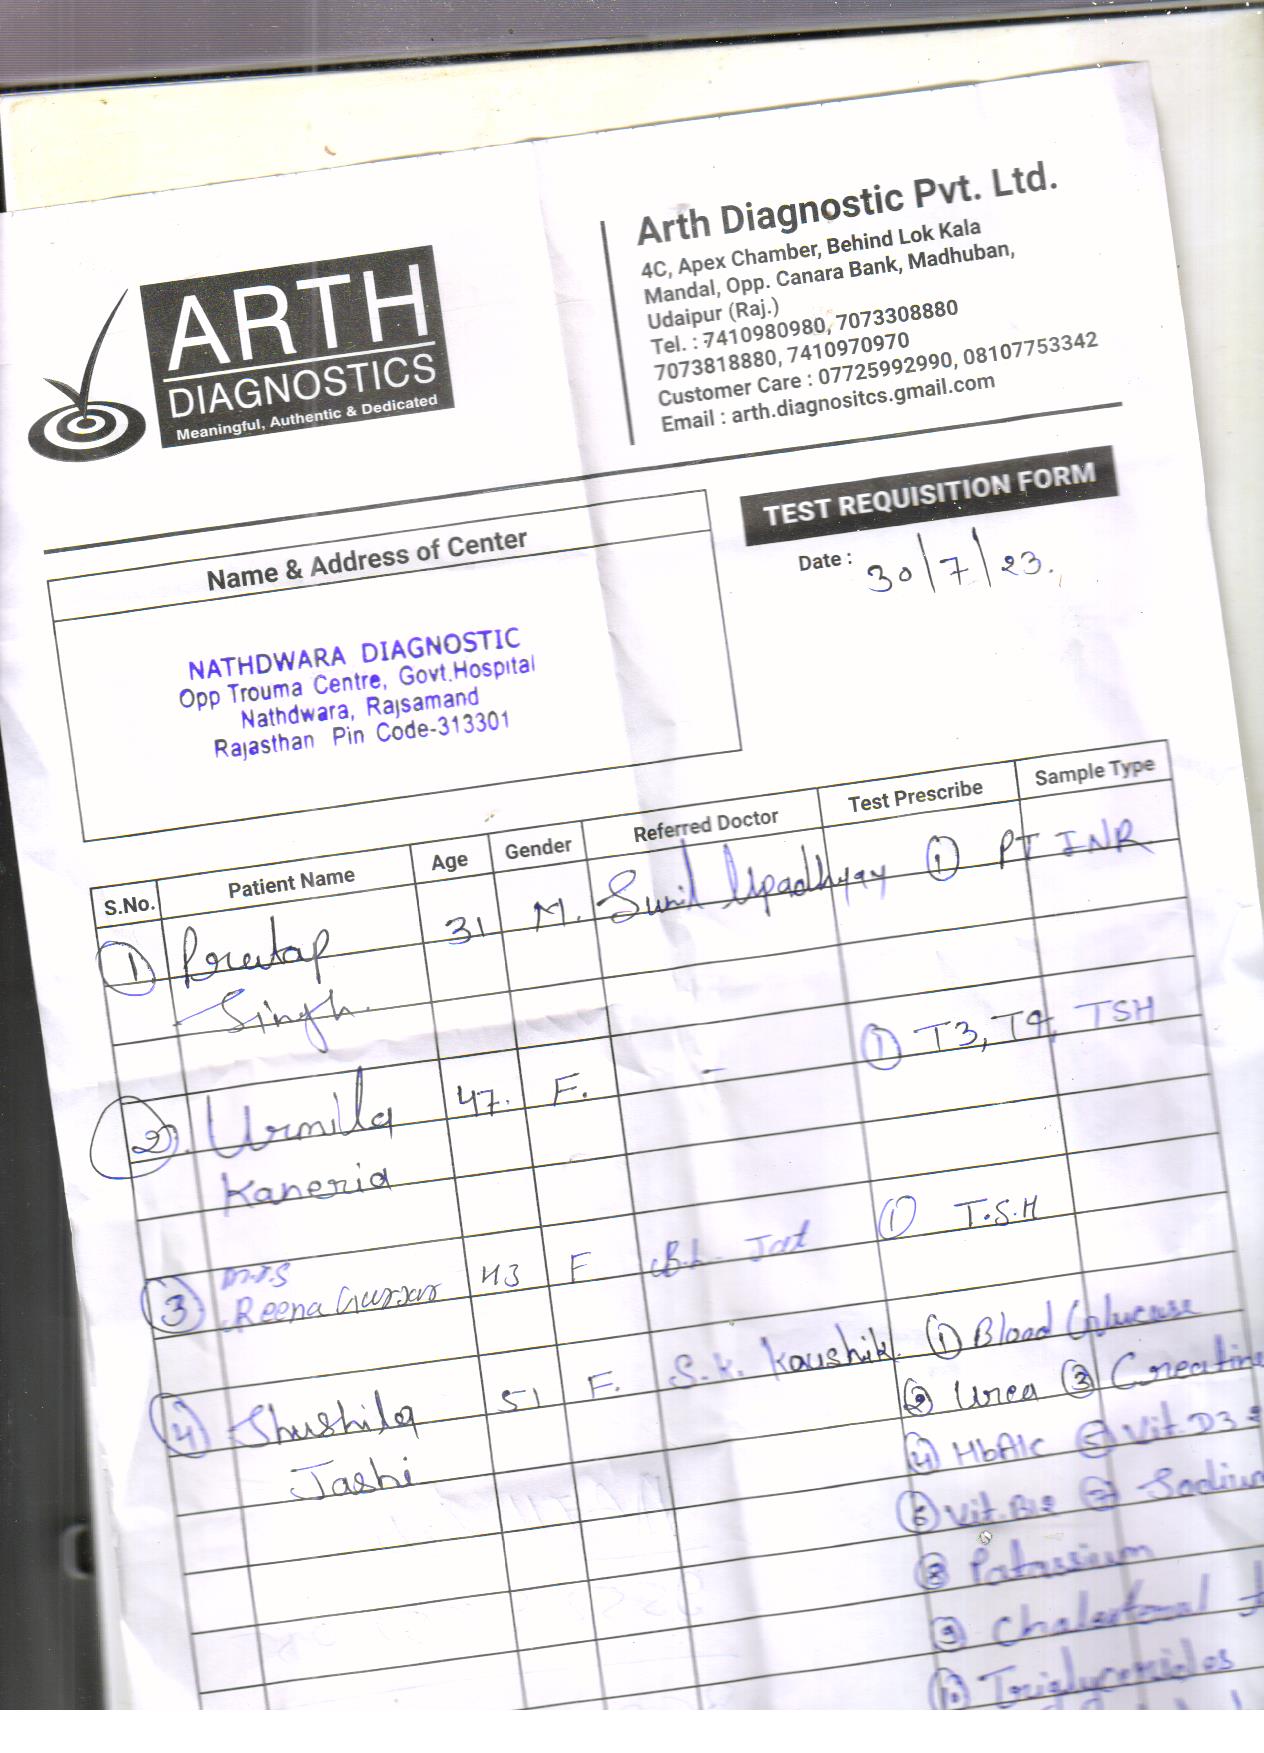 ARTH
DIAGNOSTICS
Meaningful, Authentic & Dedicated
Arth Diagnostic Pvt. Ltd.
4C, Apex Chamber, Behind Lok Kala
Mandal, Opp. Canara Bank, Madhuban,
Udaipur (Raj.)
Tel. : 7410980980, 7073308880
7073818880, 7410970970
Customer Care : 07725992990, 08107753342
Email : arth.diagnositcs.gmail.com
TEST REQUISITION FORM
Date : 30/7/23.
Name & Address of Center
NATHDWARA DIAGNOSTIC
Opp Trouma Centre, Govt.Hospital
Nathdwara, Rajsamand
Rajasthan Pin Code-313301
S.No. Patient Name Age Gender Referred Doctor Test Prescribe Sample Type
1 Pratap 31 M. Sunil Upadhyay 1 PT INR
Singh.
2. Urmilla 47. F. - 1 T3, T4, TSH
Kaneria
3 Reena Gurjar 43 F B.L. Jat 1 T.S.H
4 Shushila 51 F. S.K. Kaushik. 1 Blood Glucose
Jashi 2 Urea 3 Creatine
4 HbA1c 5 Vit.D3
6 Vit.B12 7 Sodium
8 Potassium
9 Cholesterol
10 Triglycerides